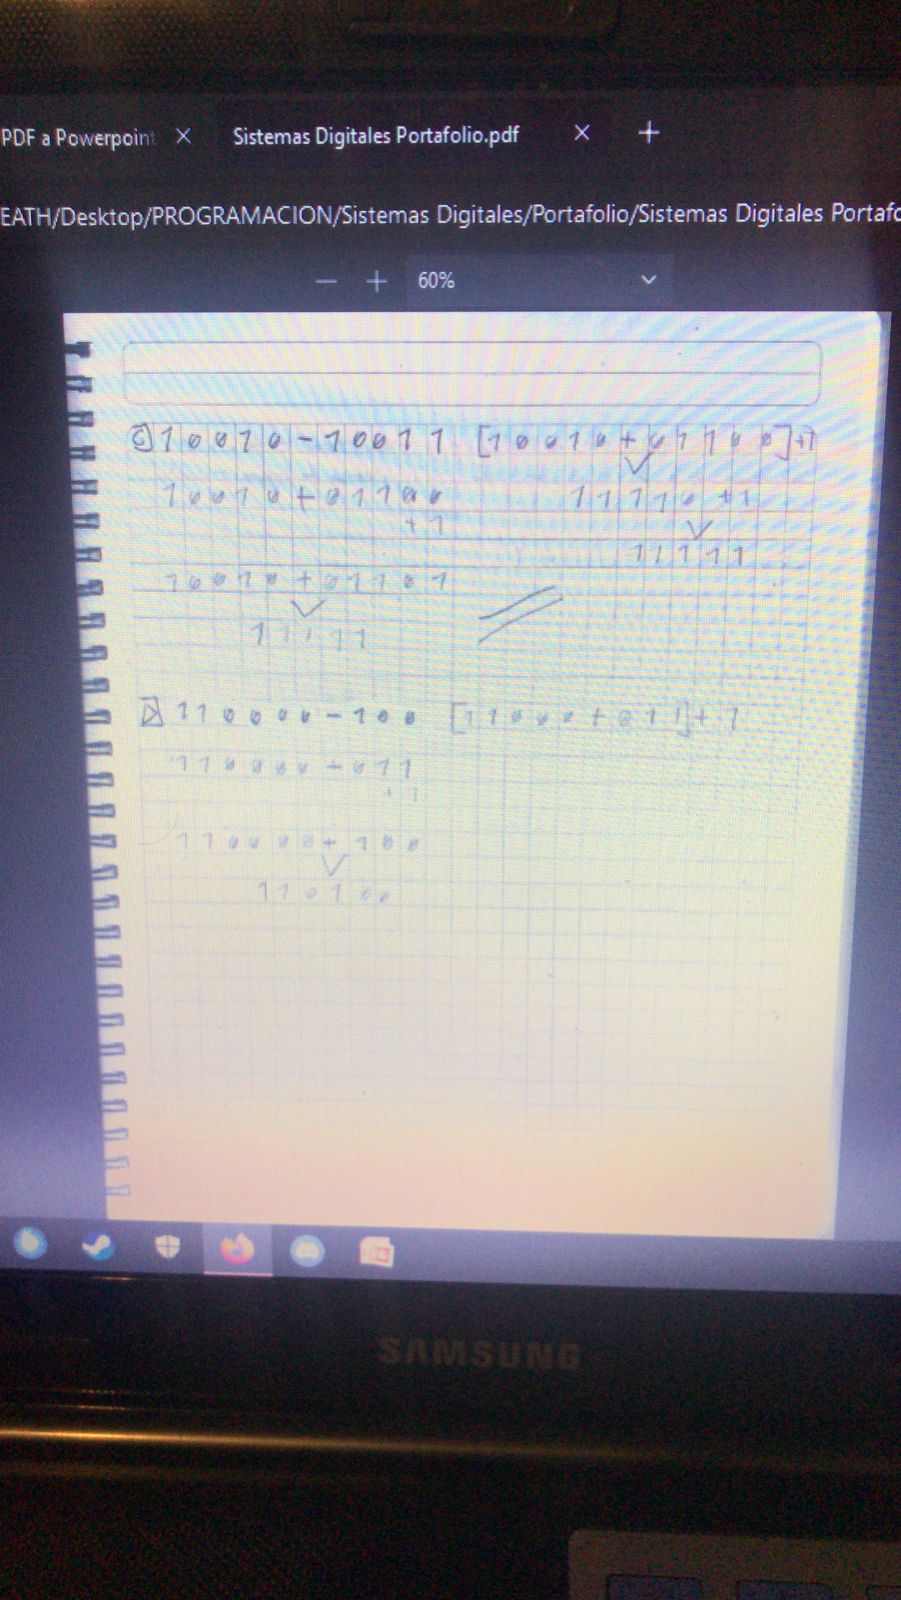 PDF a Powerpoint
Sistemas Digitales Portafolio.pdf
EATH/Desktop/PROGRAMACION/Sistemas Digitales/Portafolio/Sistemas Digitales Portafo
60%
C 10010-10011 [10010+01100]+1
10010+01100 11110+1
+1 11111
10010+01101
11111
D 110000-100 [11000+011]+1
110000-011
+1
110000+100
110100
SAMSUNG